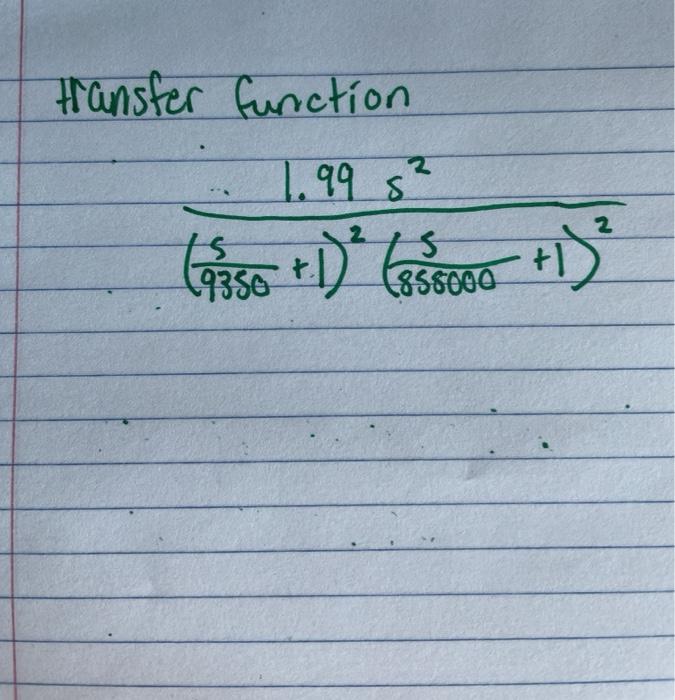 transfer function
1.99 s²
(s/9350 +1)² (s/858000 +1)²